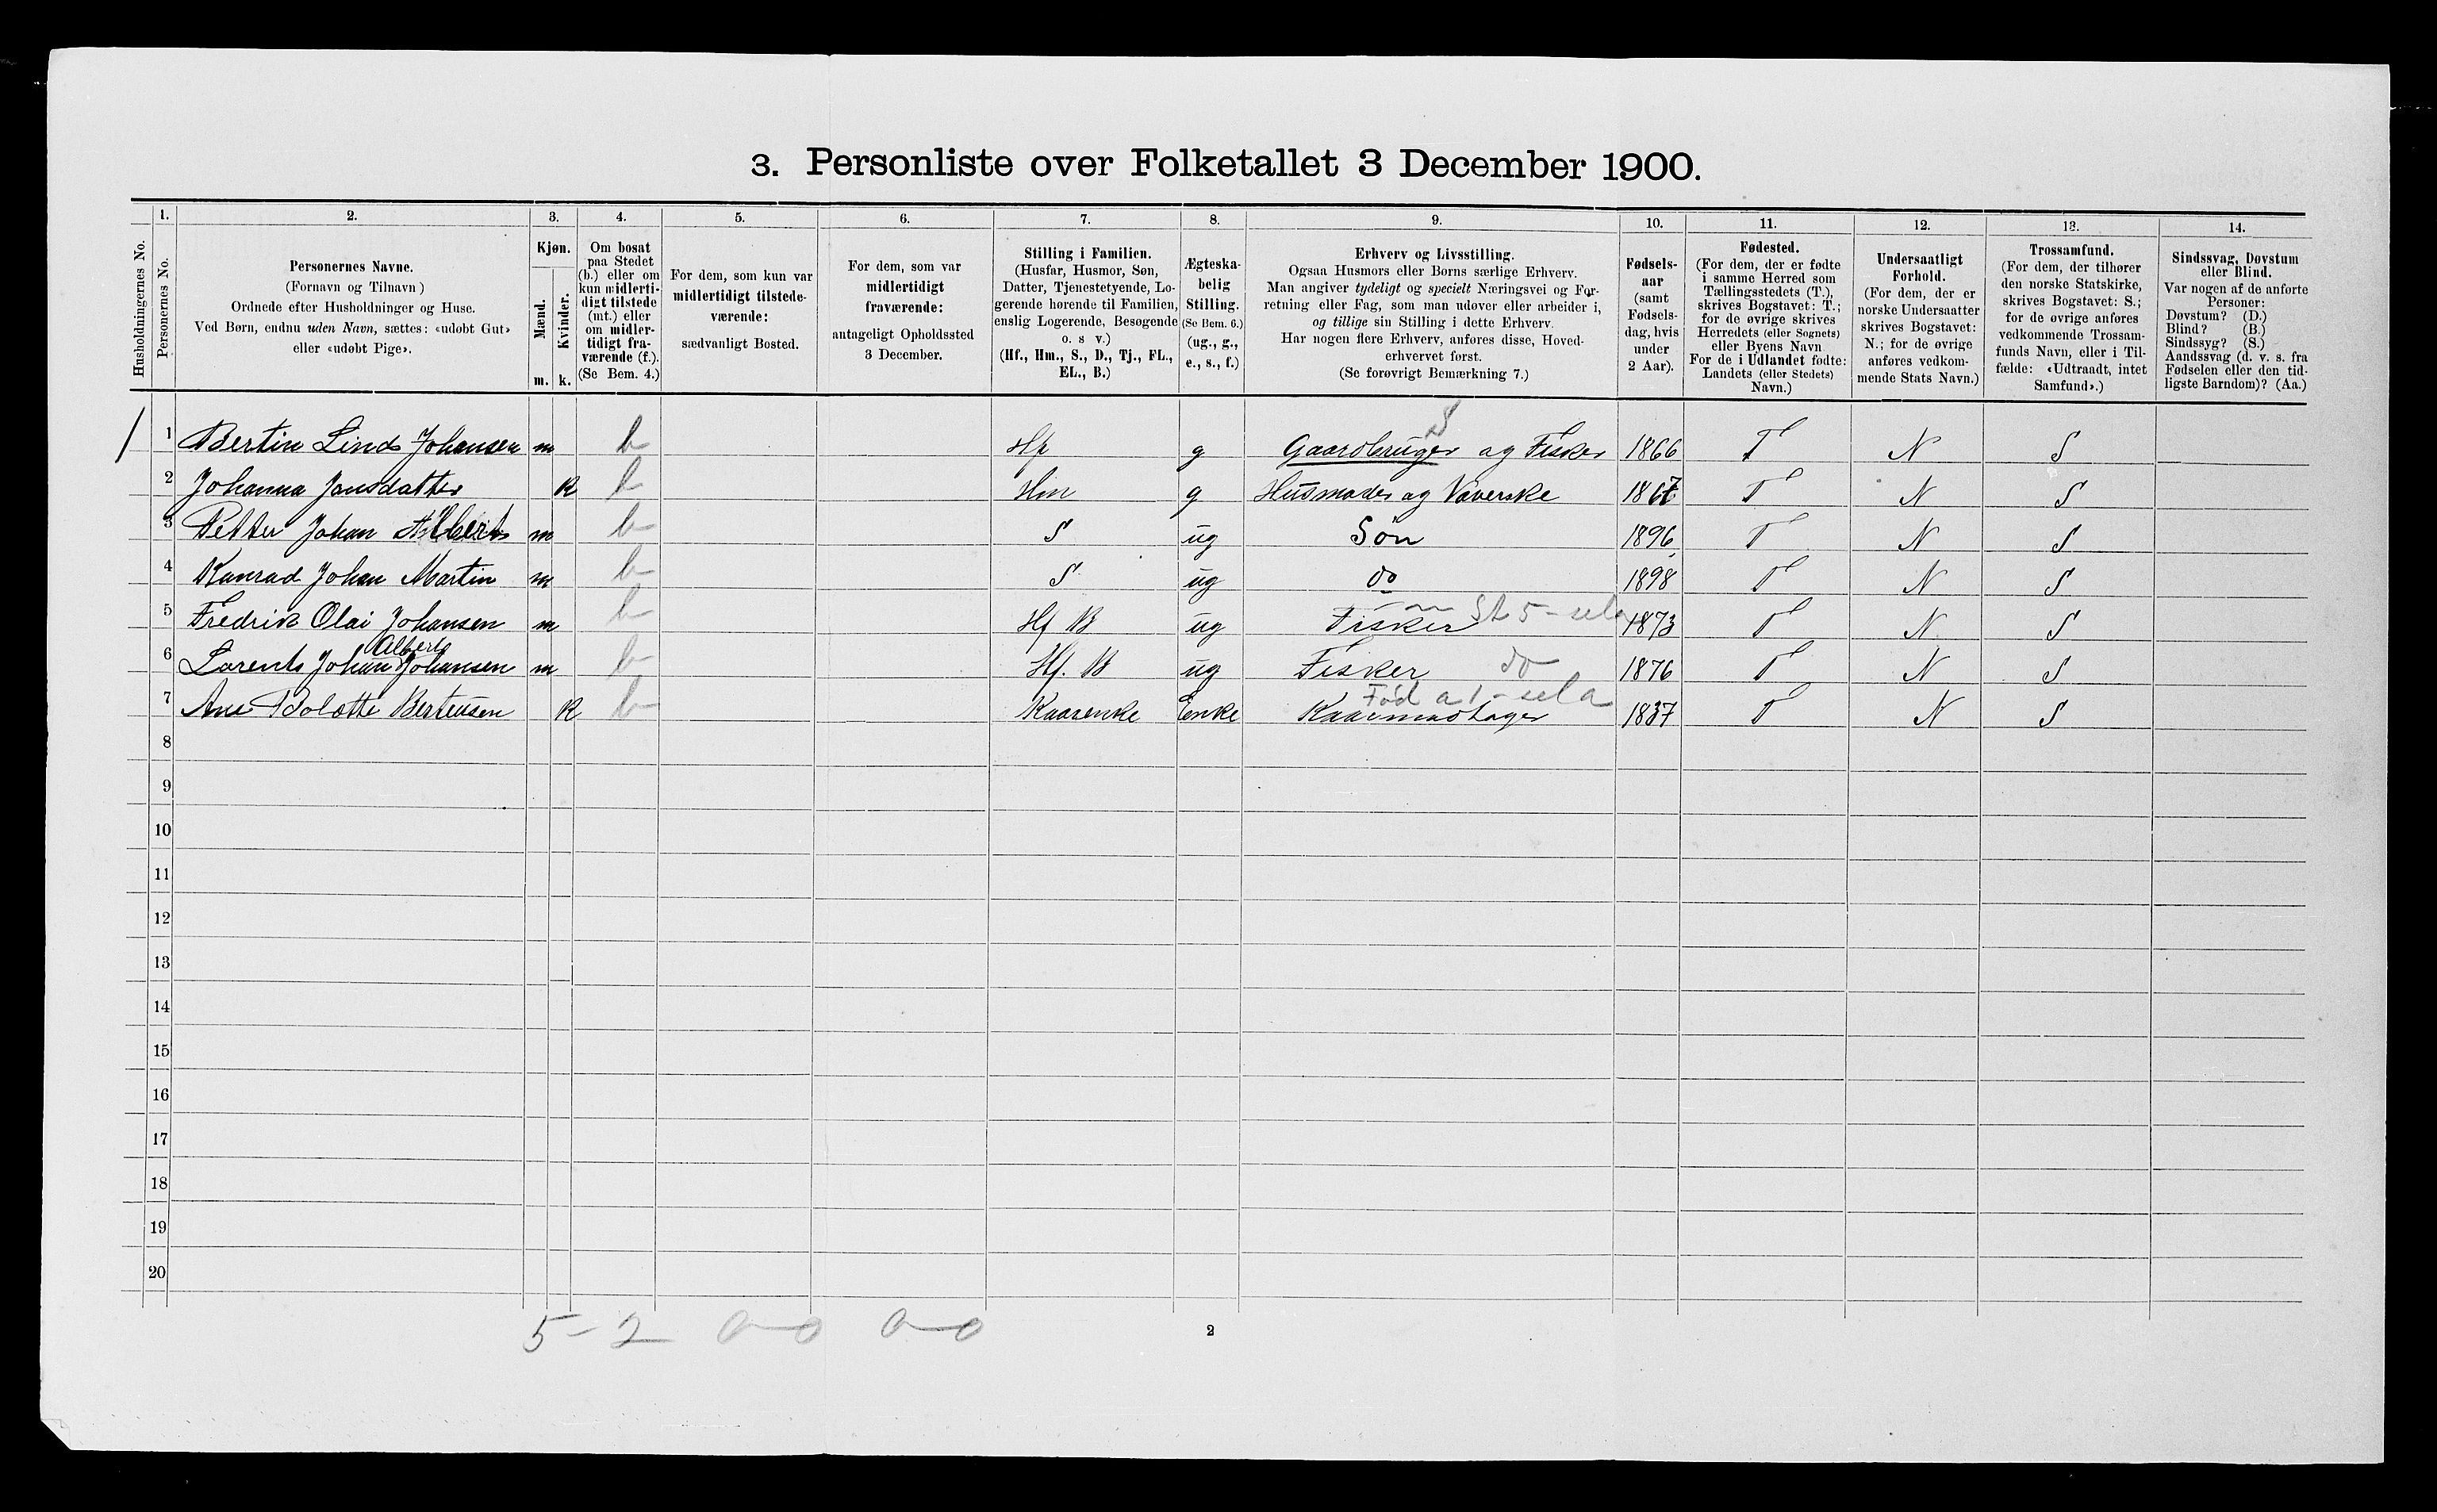 3. Personliste over Folketallet 3 December 1900.
1. 2. 3. 4. 5. 6. 7. 8. 9. 10. 11. 12. 13. 14.
Husholdningernes No.
Personernes No.
Personernes Navne.
(Fornavn og Tilnavn)
Ordnede efter Husholdninger og Huse.
Ved Børn, endnu uden Navn, sættes: «udøbt Gut»
eller «udøbt Pige».
Kjøn.
Mænd.
Kvinder.
m. k.
Om bosat
paa Stedet
(b.) eller om
kun midlerti-
digt tilstede
(mt.) eller
om midler-
tidigt fra-
værende (f.).
(Se Bem. 4.)
For dem, som kun var
midlertidigt tilstede-
værende:
sædvanligt Bosted.
For dem, som var
midlertidigt
fraværende:
antageligt Opholdssted
3 December.
Stilling i Familien.
(Husfar, Husmor, Søn,
Datter, Tjenestetyende, Lo-
gerende hørende til Familien,
enslig Logerende, Besøgende
o. s v.)
(Hf., Hm., S., D., Tj., FL.,
EL., B.)
Ægteska-
belig
Stilling.
(Se Bem. 6.)
(ug., g.,
e., s., f.)
Erhverv og Livsstilling.
Ogsaa Husmors eller Børns særlige Erhverv.
Man angiver tydeligt og specielt Næringsvei og For-
retning eller Fag, som man udøver eller arbeider i,
og tillige sin Stilling i dette Erhverv.
Har nogen flere Erhverv, anføres disse, Hoved-
erhvervet først.
(Se forøvrigt Bemærkning 7.)
Fødsels-
aar
(samt
Fødsels-
dag, hvis
under
2 Aar).
Fødested.
(For dem, der er fødte
i samme Herred som
Tællingsstedets (T.),
skrives Bogstavet: T.;
for de øvrige skrives
Herredets (eller Sognets)
eller Byens Navn
For de i Udlandet fødte:
Landets (eller Stedets)
Navn.)
Undersaatligt
Forhold.
(For dem, der er
norske Undersaatter
skrives Bogstavet:
N.; for de øvrige
anføres vedkom-
mende Stats Navn.)
Trossamfund.
(For dem, der tilhører
den norske Statskirke,
skrives Bogstavet: S.;
for de øvrige anføres
vedkommende Trossam-
funds Navn, eller i Til-
fælde: «Udtraadt, intet
Samfund».)
Sindssvag, Døvstum
eller Blind.
Var nogen af de anførte
Personer:
Døvstum? (D.)
Blind? (B.)
Sindssyg? (S.)
Aandssvag (d. v. s. fra
Fødselen eller den tid-
ligste Barndom)? (Aa.)
1 Bertin Lind Johansen m b Hf g Gaardbruger og Fisker 1866 T N S
2 Johanna Jansdatter K b Hm g Husmoder og Væverske 1867 T N S
3 Petter Johan Albert m b S ug Søn 1896 T N S
4 Kanrad Johan Martin m b S ug do 1898 T N S
5 Fredrik Olai Johansen m b Hf B ug Fisker 1873 T N S
Albert
6 Lorents Johan Johansen m b Hf. B ug Fisker do 1876 T N S
7 Ane Bolotte Berteusen K b Kaarenke Enke 1837 T N S
8
9
10
11
12
13
14
15
16
17
18
19
20
5-2 0-0 0-0
2